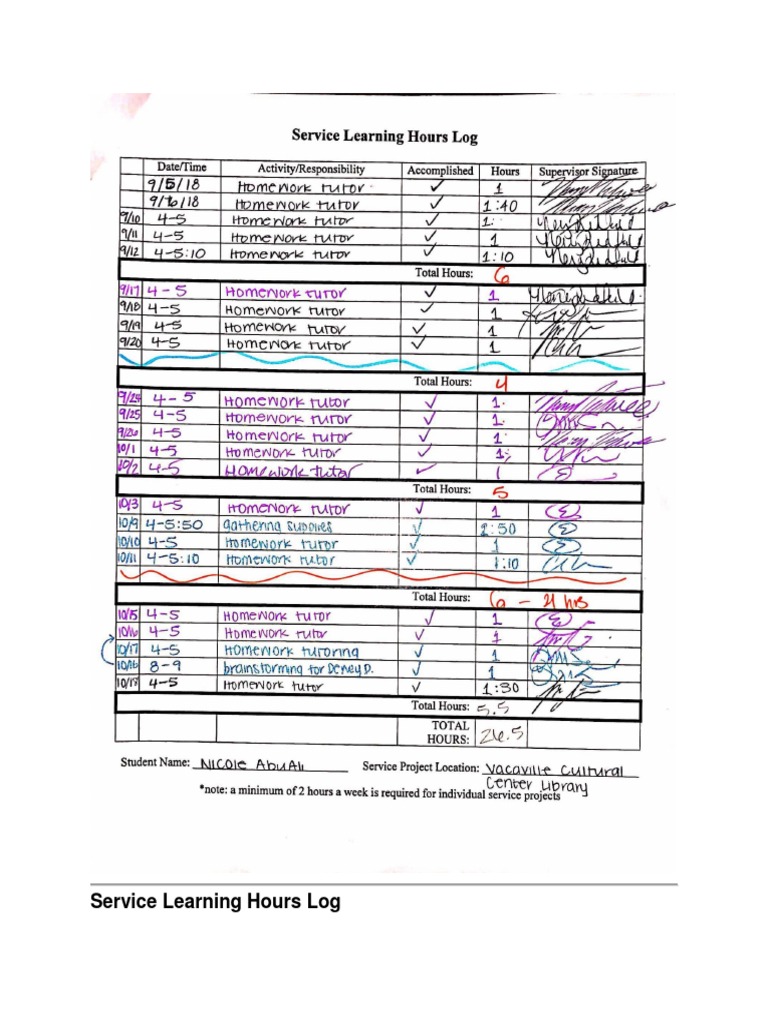 Service Learning Hours Log
Date/Time Activity/Responsibility Accomplished Hours Supervisor Signature
9/5/18 Homework tutor ✓ 1
9/6/18 Homework tutor ✓ 1:40
9/10 4-5 Homework tutor ✓ 1:
9/11 4-5 Homework tutor ✓ 1
9/12 4-5:10 Homework tutor ✓ 1:10
Total Hours: 6
9/17 4-5 Homework tutor ✓ 1
9/18 4-5 Homework tutor ✓ 1
9/19 4-5 Homework tutor ✓ 1
9/20 4-5 Homework tutor ✓ 1
Total Hours: 4
9/24 4-5 Homework tutor ✓ 1:
9/25 4-5 Homework tutor ✓ 1:
9/26 4-5 Homework tutor ✓ 1:
10/1 4-5 Homework tutor ✓ 1:
10/2 4-5 Homework tutor ✓ 1
Total Hours: 5
10/3 4-5 Homework tutor ✓ 1
10/9 4-5:50 gathering supplies ✓ 1:50
10/10 4-5 Homework tutor ✓ 1
10/11 4-5:10 Homework tutor ✓ 1:10
Total Hours: 6 - 21 hrs
10/15 4-5 Homework tutor ✓ 1
10/16 4-5 Homework tutor ✓ 1
10/17 4-5 Homework tutoring ✓ 1
10/16 8-9 brainstorming for Deney D. ✓ 1
10/18 4-5 Homework tutor ✓ 1:30
Total Hours: 5.5
TOTAL
HOURS: 26.5
Student Name: Nicole AbuAli Service Project Location: Vacaville Cultural
Center Library
*note: a minimum of 2 hours a week is required for individual service projects
Service Learning Hours Log